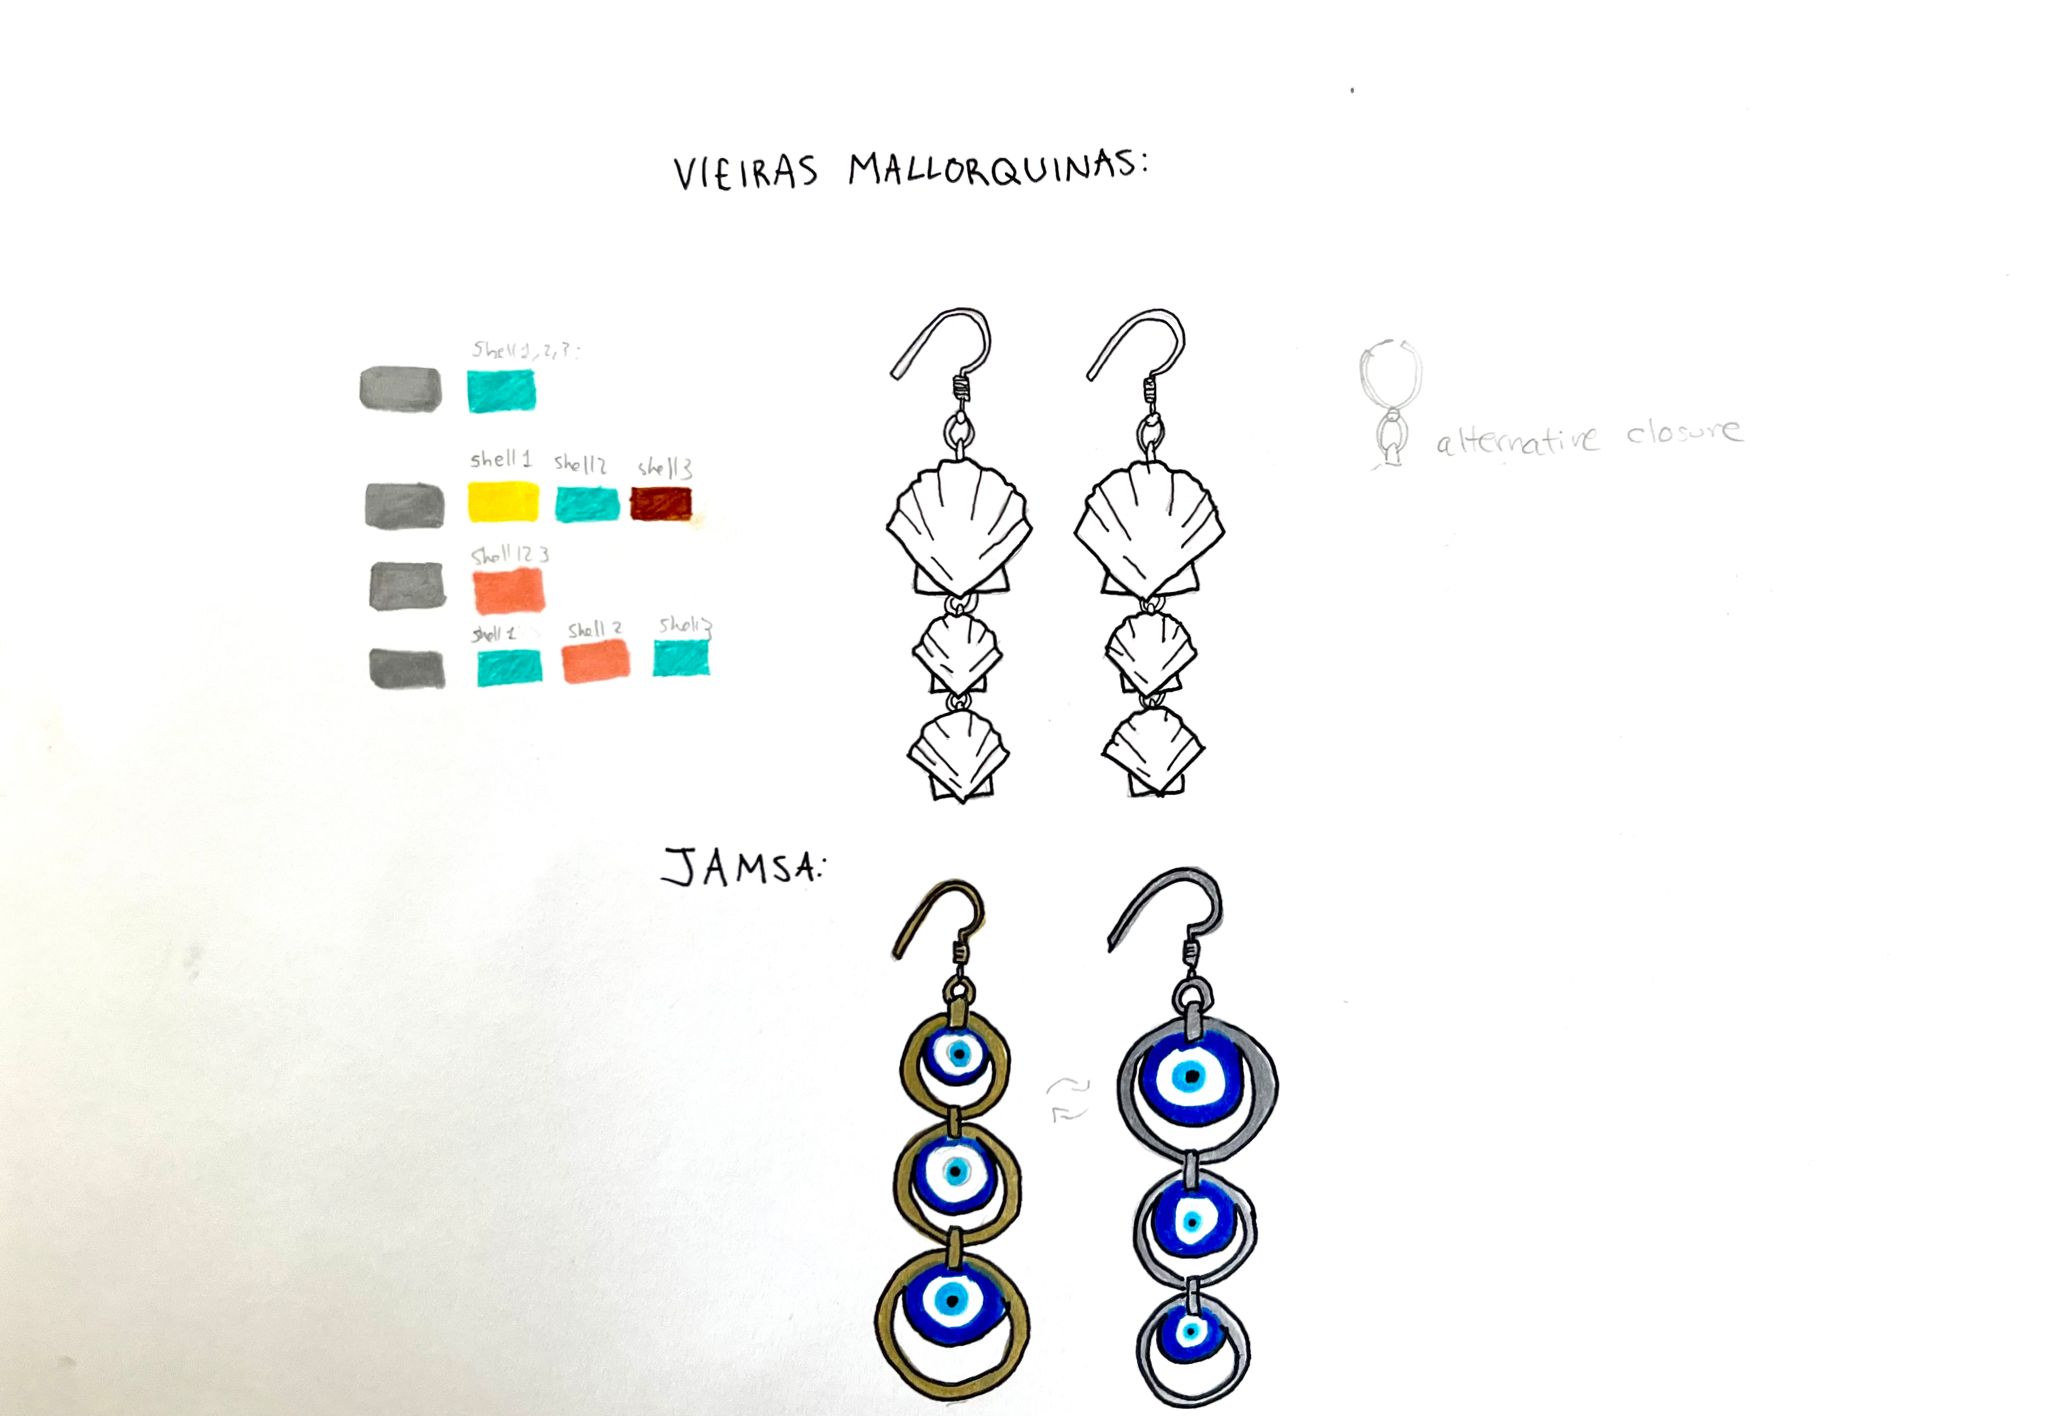 VIEIRAS MALLORQUINAS:
shell 1, 2, 3:
shell 1 shell 2 shell 3
shell 1 2 3
shell 1 shell 2 shell 3
alternative closure
JAMSA: